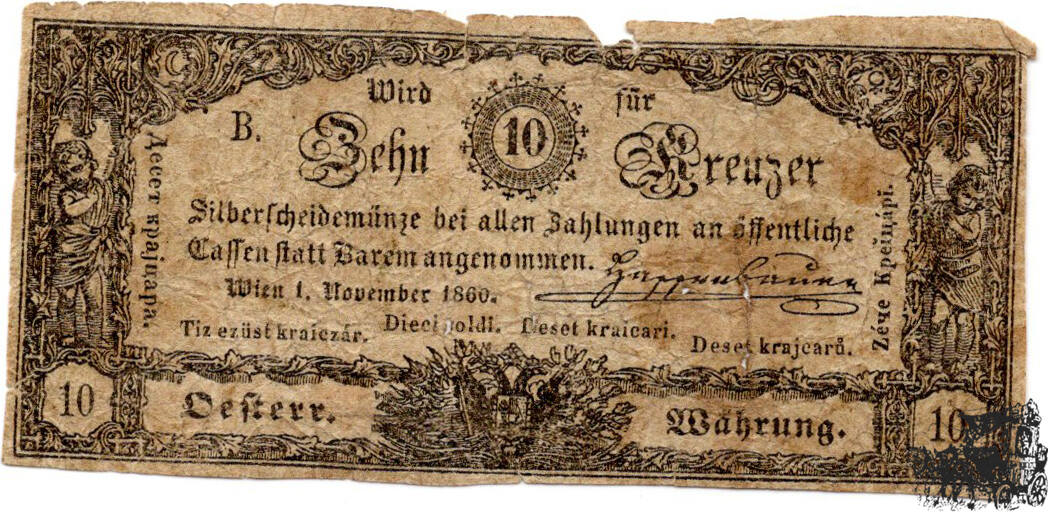 Wird 10 für
B. Zehn Kreuzer
Silberscheidemünze bei allen Zahlungen an öffentliche
Cassen statt Barem angenommen.
Wien 1. November 1860.
Tiz ezüst kraiczár. Dieci soldi. Deset kraicari. Deset krajcarů.
Десет крајцара.
Zéче Крейцápi.
10 Oesterr. Währung. 10